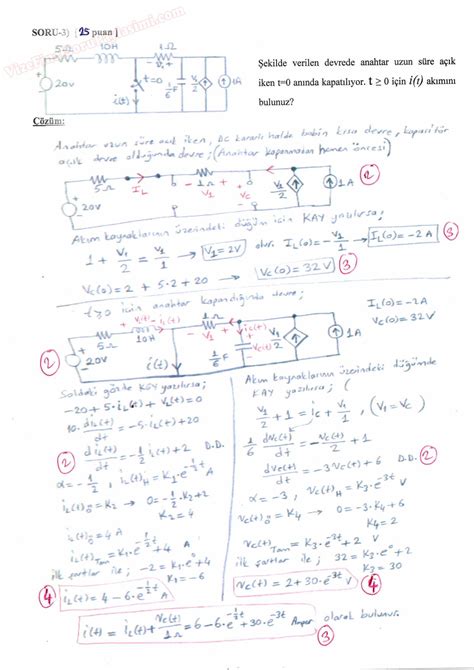 SORU-3) [25 puan]
5Ω 10H 1Ω
20V t=0 i(t) 1/6 F v₁/2 1A
Şekilde verilen devrede anahtar uzun süre açık
iken t=0 anında kapatılıyor. t ≥ 0 için i(t) akımını
bulunuz?
Çözüm:
Anahtar uzun süre açık iken, DC kararlı halde bobin kısa devre, kapasitör
açık devre olduğunda devre; (Anahtar kapanmadan hemen öncesi)
5Ω I_L 1Ω
20V v₁ v_c v₁/2 1A
2
Akım kaynaklarının üzerindeki düğüm için KAY yazılırsa;
1 + v₁/2 = v₁/1 → v₁ = 2V olur. I_L(0) = -v₁/1 → I_L(0) = -2 A
3
v_c(0) = 2 + 5.2 + 20 → v_c(0) = 32 V
3
t≥0 için anahtar kapandığında devre;
I_L(0) = -2A
v_c(0) = 32V
5Ω v_L(t) i_L(t) 10H 1Ω v₁ i_c(t)
20V i(t) 1/6 F v_c(t) v₁/2 1A
2
Soldaki gözde KGY yazılırsa;
-20 + 5.i_L(t) + v_L(t) = 0
10. di_L(t)/dt = -5.i_L(t) + 20
di_L(t)/dt = -1/2 i_L(t) + 2 D.D.
2
α = -1/2, i_L(t)_H = K₁.e^(-1/2 t) A
i_L(t)_ö = K₂ → 0 = -1/2.K₂ + 2
K₂ = 4
i_L(t)_ö = 4 A
i_L(t)_Tam = K₁.e^(-1/2 t) + 4 A
ilk şartlar ile; -2 = K₁.e⁰ + 4
K₁ = -6
i_L(t) = 4 - 6.e^(-1/2 t) A
4
Akım kaynaklarının üzerindeki düğümde
KAY yazılırsa;
v₁/2 + 1 = i_c + v₁/1, (v₁ = v_c)
1/6 dv_c(t)/dt = -v_c(t)/2 + 1
dv_c(t)/dt = -3v_c(t) + 6 D.D.
2
α = -3, v_c(t)_H = K₃.e^(-3t) V
v_c(t)_ö = K₄ → 0 = -3.K₄ + 6
K₄ = 2
v_c(t)_ö = 2 V
v_c(t)_Tam = K₃.e^(-3t) + 2 V
ilk şartlar ile; 32 = K₃.e⁰ + 2
K₃ = 30
v_c(t) = 2 + 30.e^(-3t) V
4
i(t) = i_L(t) + v_c(t)/1Ω = 6 - 6.e^(-1/2 t) + 30.e^(-3t) Amper olarak bulunur.
3